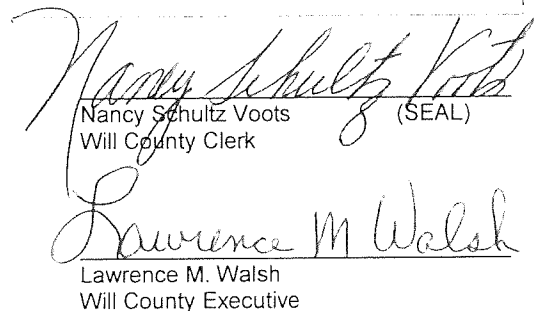 Nancy Schultz Voots
Nancy Schultz Voots (SEAL)
Will County Clerk
Lawrence M Walsh
Lawrence M. Walsh
Will County Executive